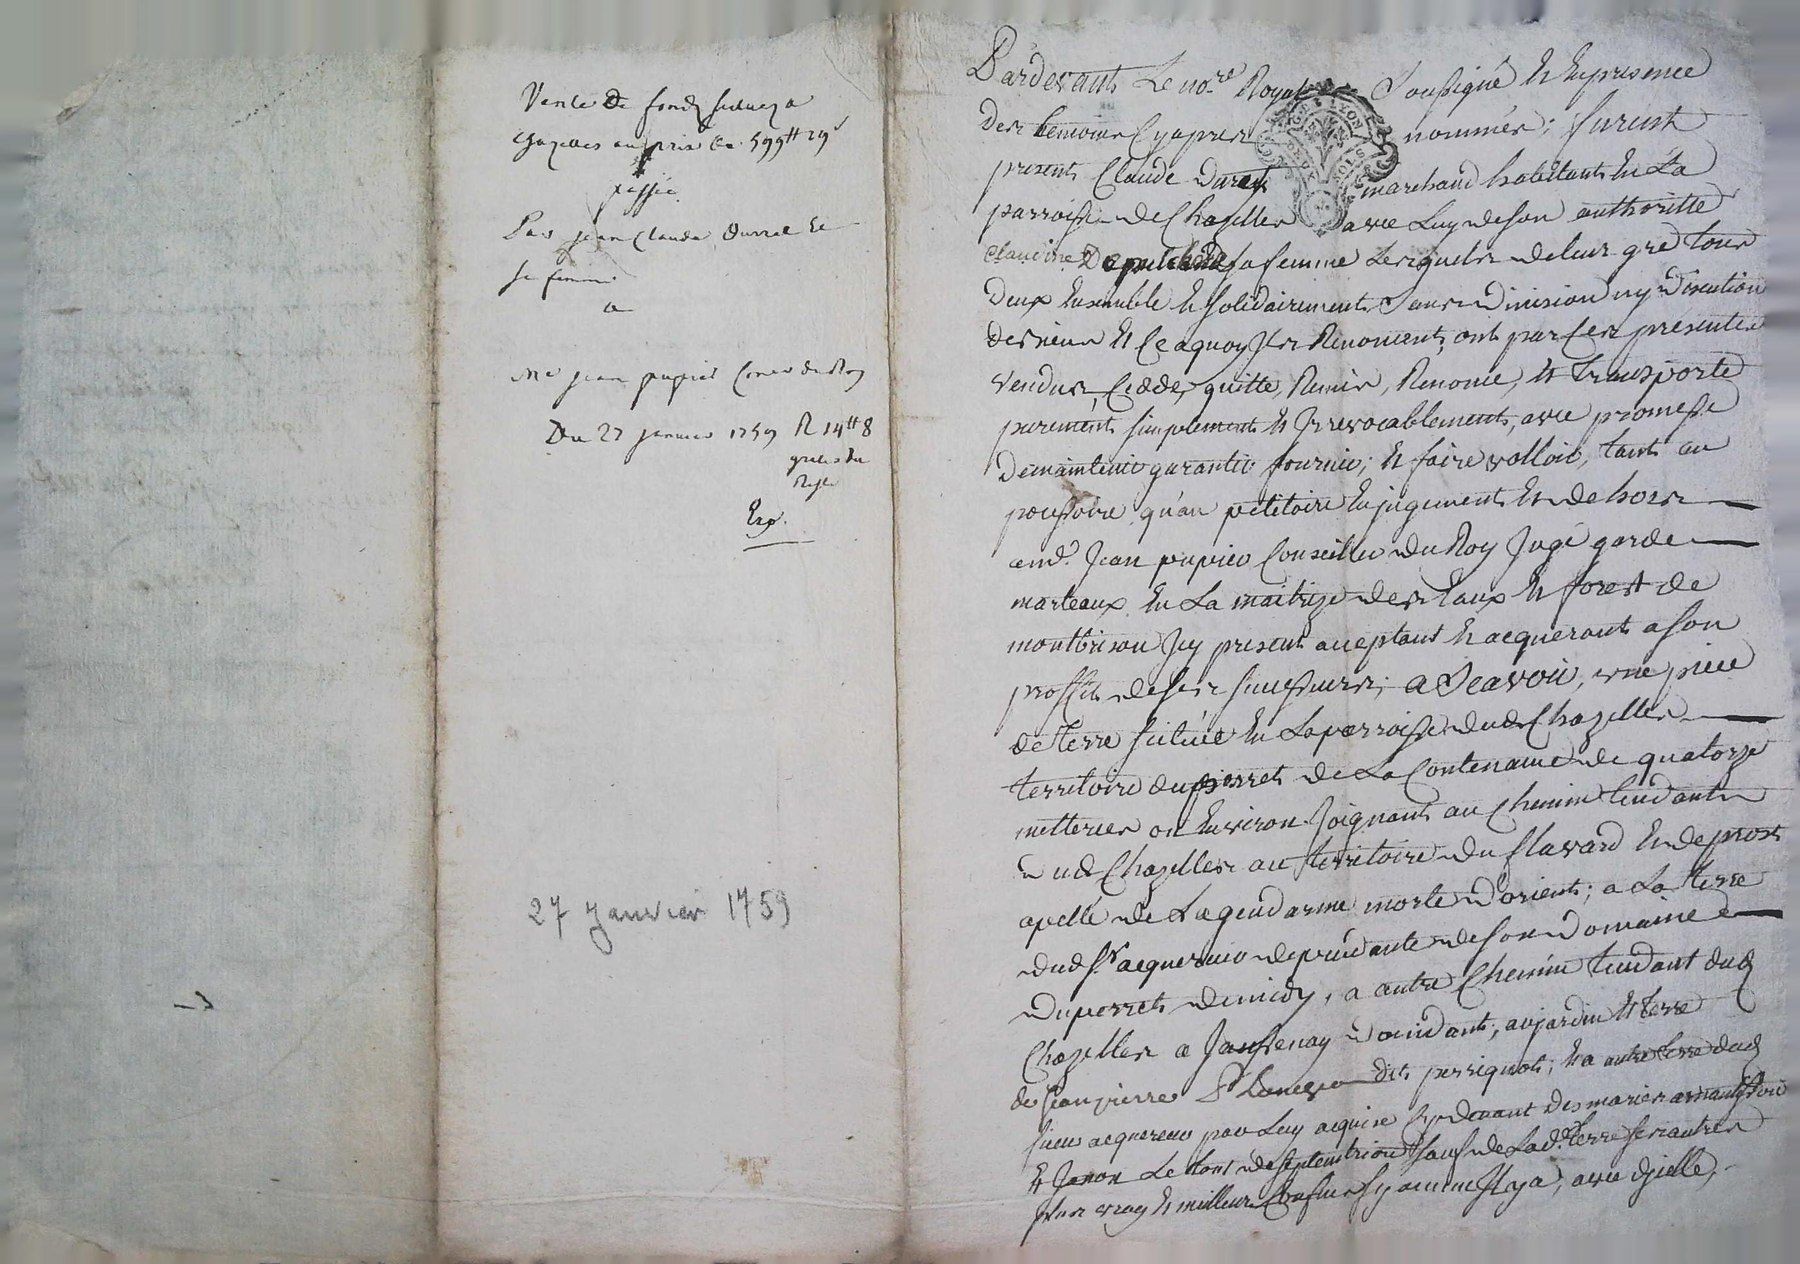 Vente de fond situez a
Chazelles au prix de 599tt 19s
passée
Par jean Claude Durret et
sa femme
a
Me jean pupier Coner du Roy
Du 27 janvier 1759 R 14tt 8
Exp.
27 Janvier 1759
Pardevant Le nore Royal Soussigné et En presence
des temoins Cyapres nommés; furent
presents Claude Duret marchand habitant En La
parroisse de Chazelles avec Luy de son authoritté
Claudine sa femme Lesquels de leur gré tous
deux Ensemble et solidairement Sans Division ny Discution
des biens et Ce aquoy Ils Renoncent, ont par Ces presentes
Vendu, Ceddé, quitte, Remis, Renonce, et transporte
purement simplement et Irrevocablement, avec promesse
de maintenir garantir fournir; et faire valloir, tant au
possessoire qu'au petitoire En jugement Et dehors
a md. Jean pupier Conseiller du Roy Juge garde
marteaux En La maitrize des Eaux et forest de
montbrison Icy present aceptant et acquerant a son
proffit de ses ; a Scavoir, une piece
de terre scituée En La parroisse dud. Chazelles
territoire du perret de La Contenance de quatorze
metterées ou Environ Joignant au Chemin tendant
dud Chazelles au territoire du flavard Et de
apellé de La gendarme morte d'orient; a La terre
dud Sr. acquereur dependante de son Domaine
du perret de midy, a autre Chemin tendant dud
Chazelles a Jansenay d'occident, au jardin et terre
de Jean pierre dit perrignot; Et a autre terre dud
sieur acquereur par Luy acquise Cydevant des mariés
et Le tout de septentrion sauf de Lad. terre ses autres
plus vray et meilleurs Confins sy aucuns Il y a, avec Ycelle,